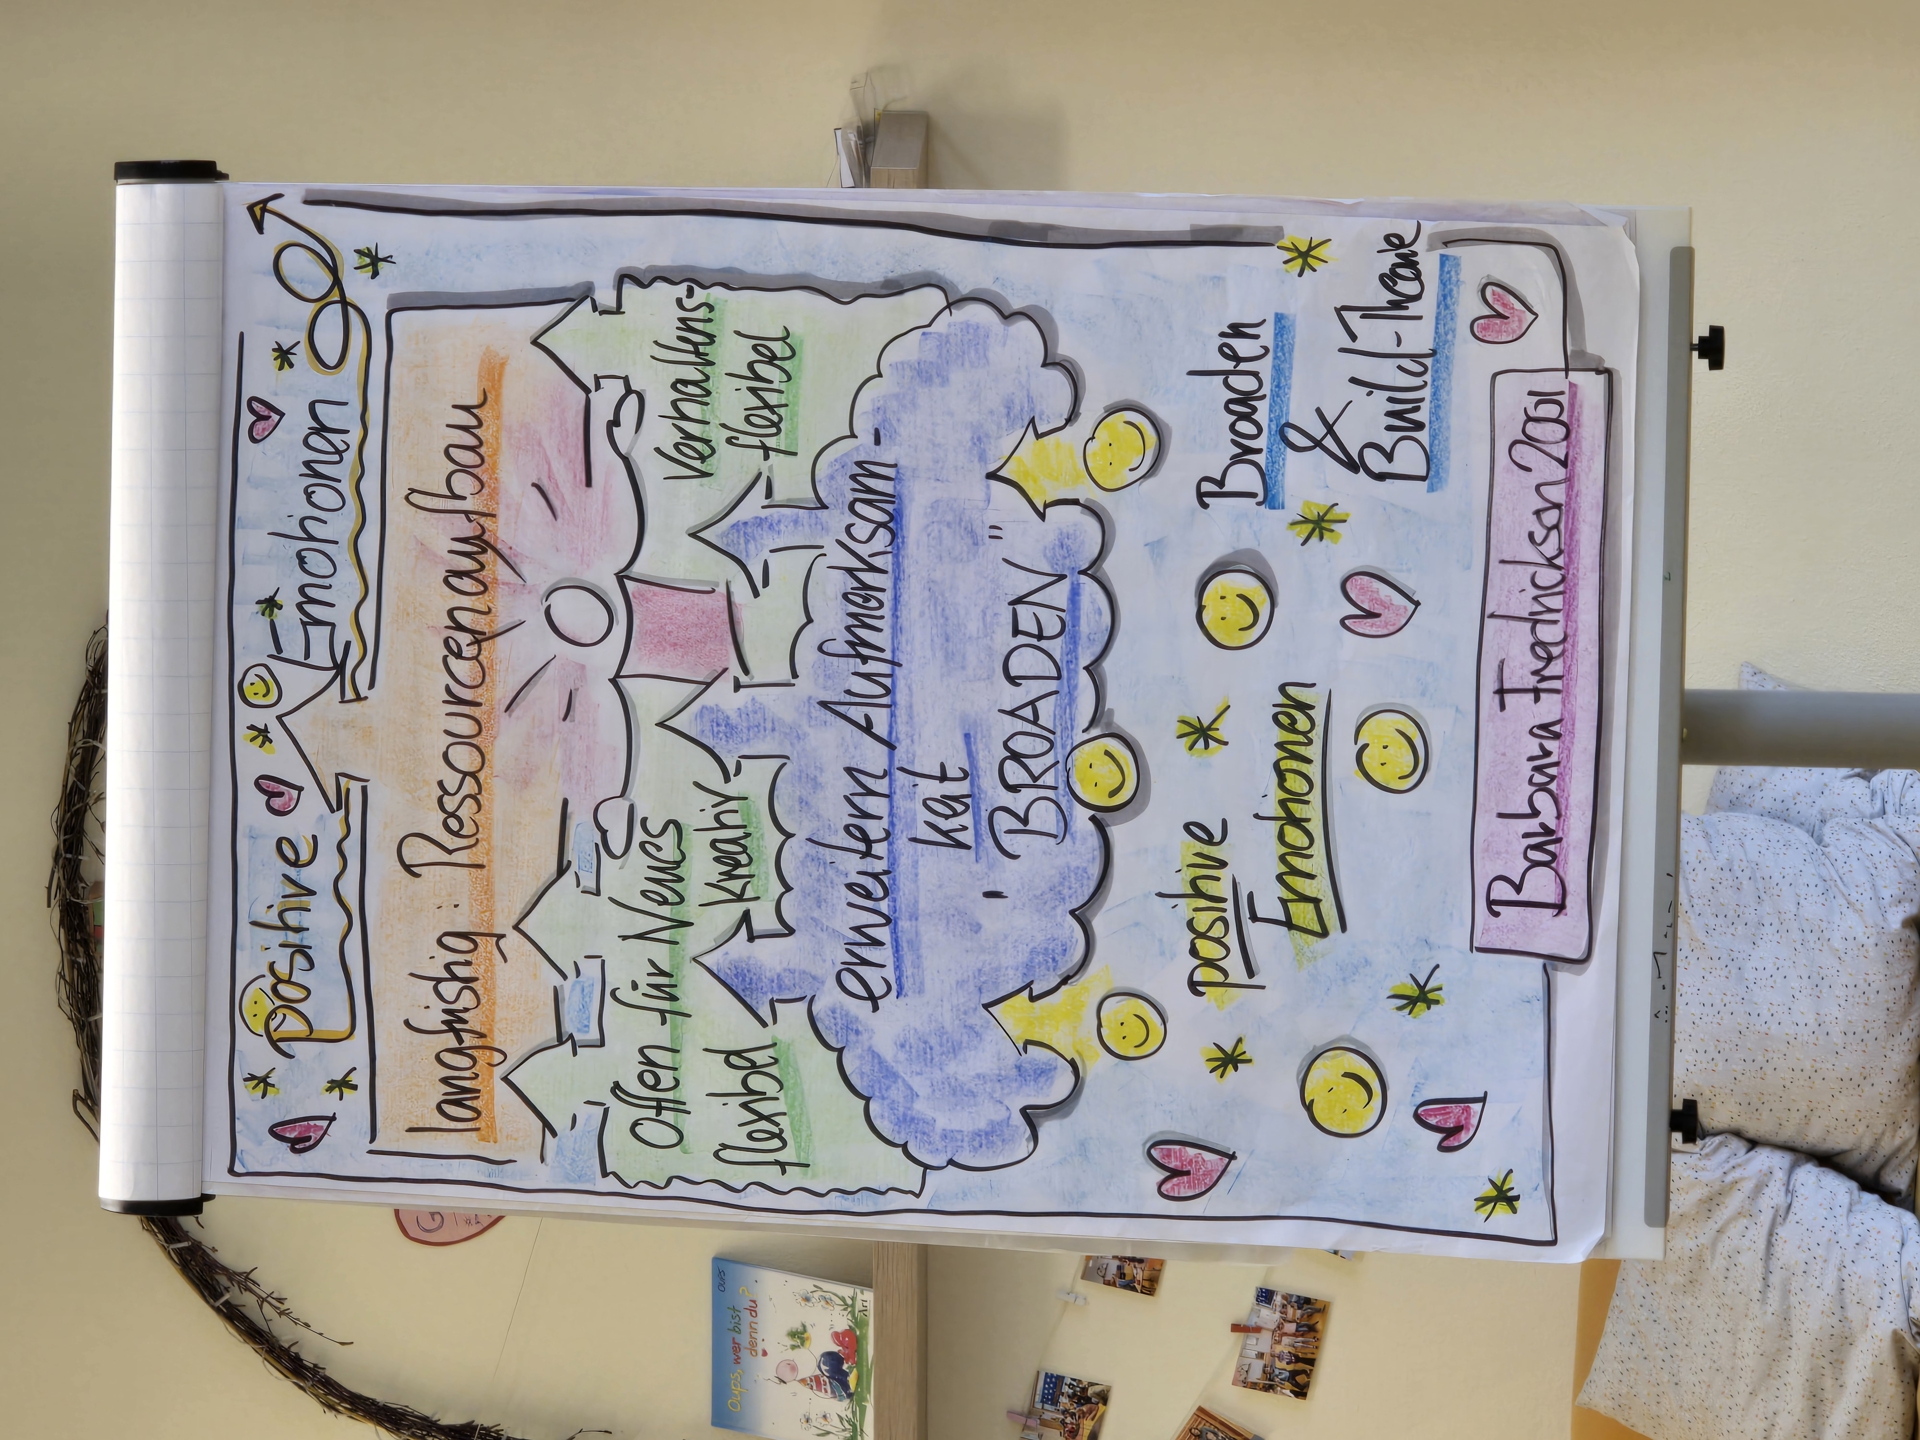 positive Emotionen
langfristig: Ressourcenaufbau
Offen für Neues
flexibel
kreativ
Verhaltens-
flexibel
erweitern Aufmerksam-
keit
"BROADEN"
positive
Emotionen
Broaden
&
Build-Theorie
Barbara Fredrickson 2001
Oups, wer bist
denn du?